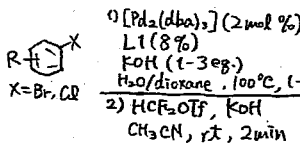 R
X
X=Br, Cl
1) [Pd2(dba)3] (2 mol %)
L1 (8%)
KOH (1-3 eq.)
H2O/dioxane, 100°C, 1-
2) HCF2OTf, KOH
CH3CN, rt, 2min